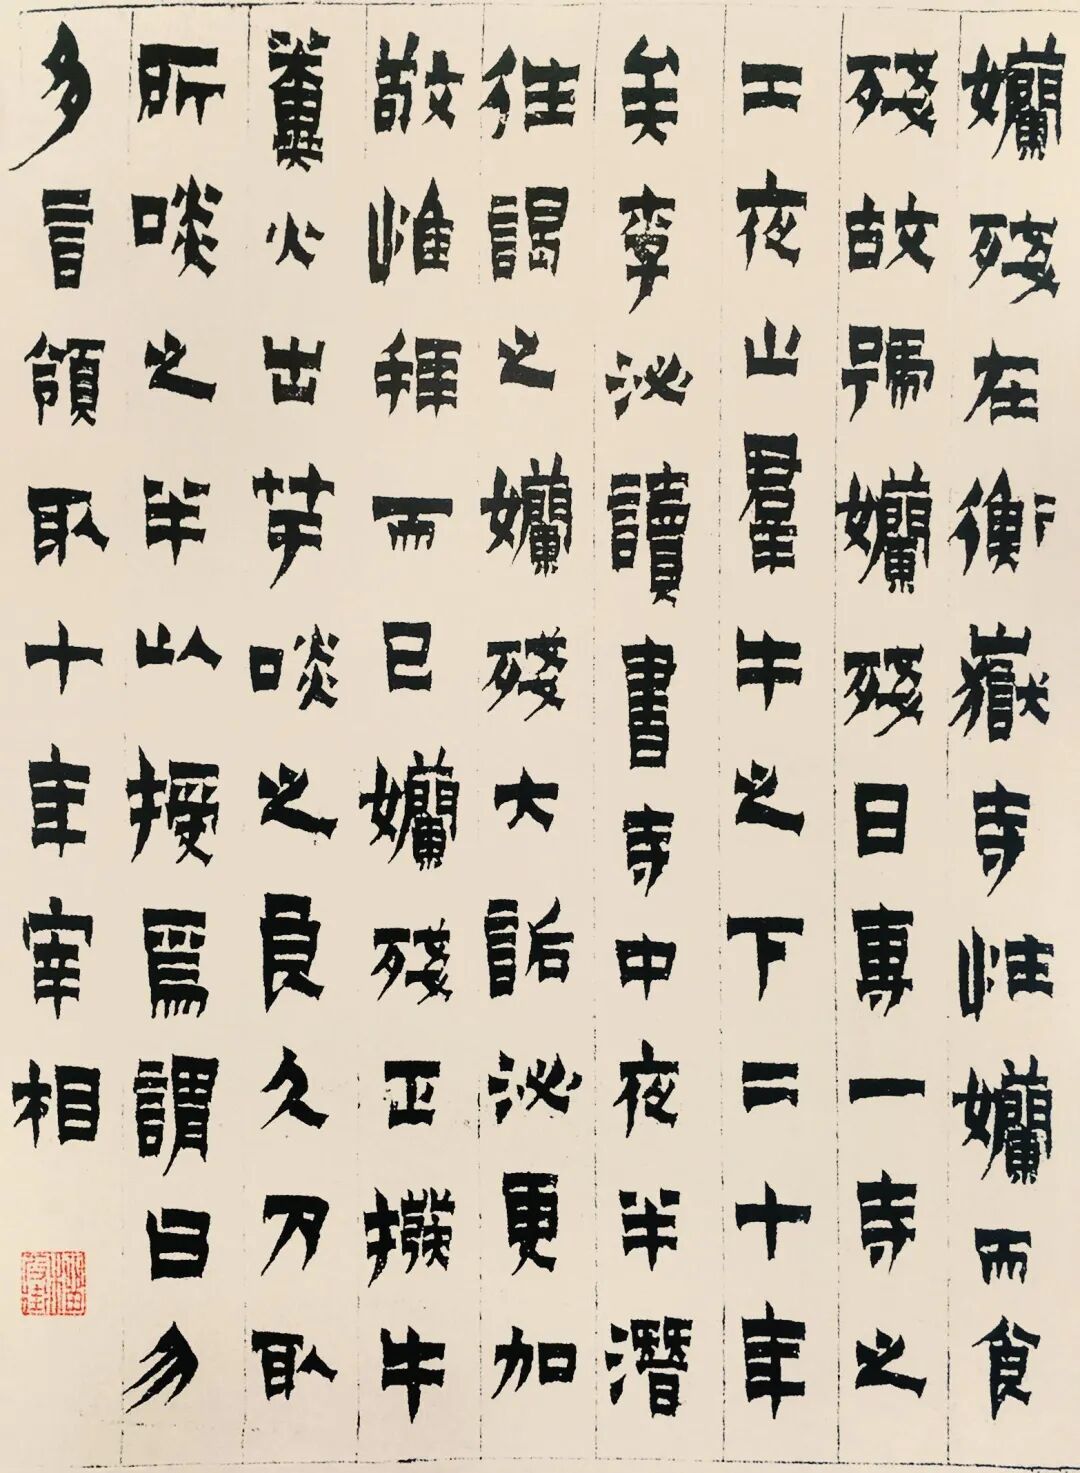 嬾殘在衡嶽寺性嬾而食
殘故號嬾殘日專一寺之
工夜止羣牛之下二十年
矣李泌讀書寺中夜半潛
往謁之嬾殘大詬泌更加
敬唯拜而已嬾殘正撥牛
糞火出芋啖之良久乃取
所啖之半以授焉謂曰勿
多言領取十年宰相